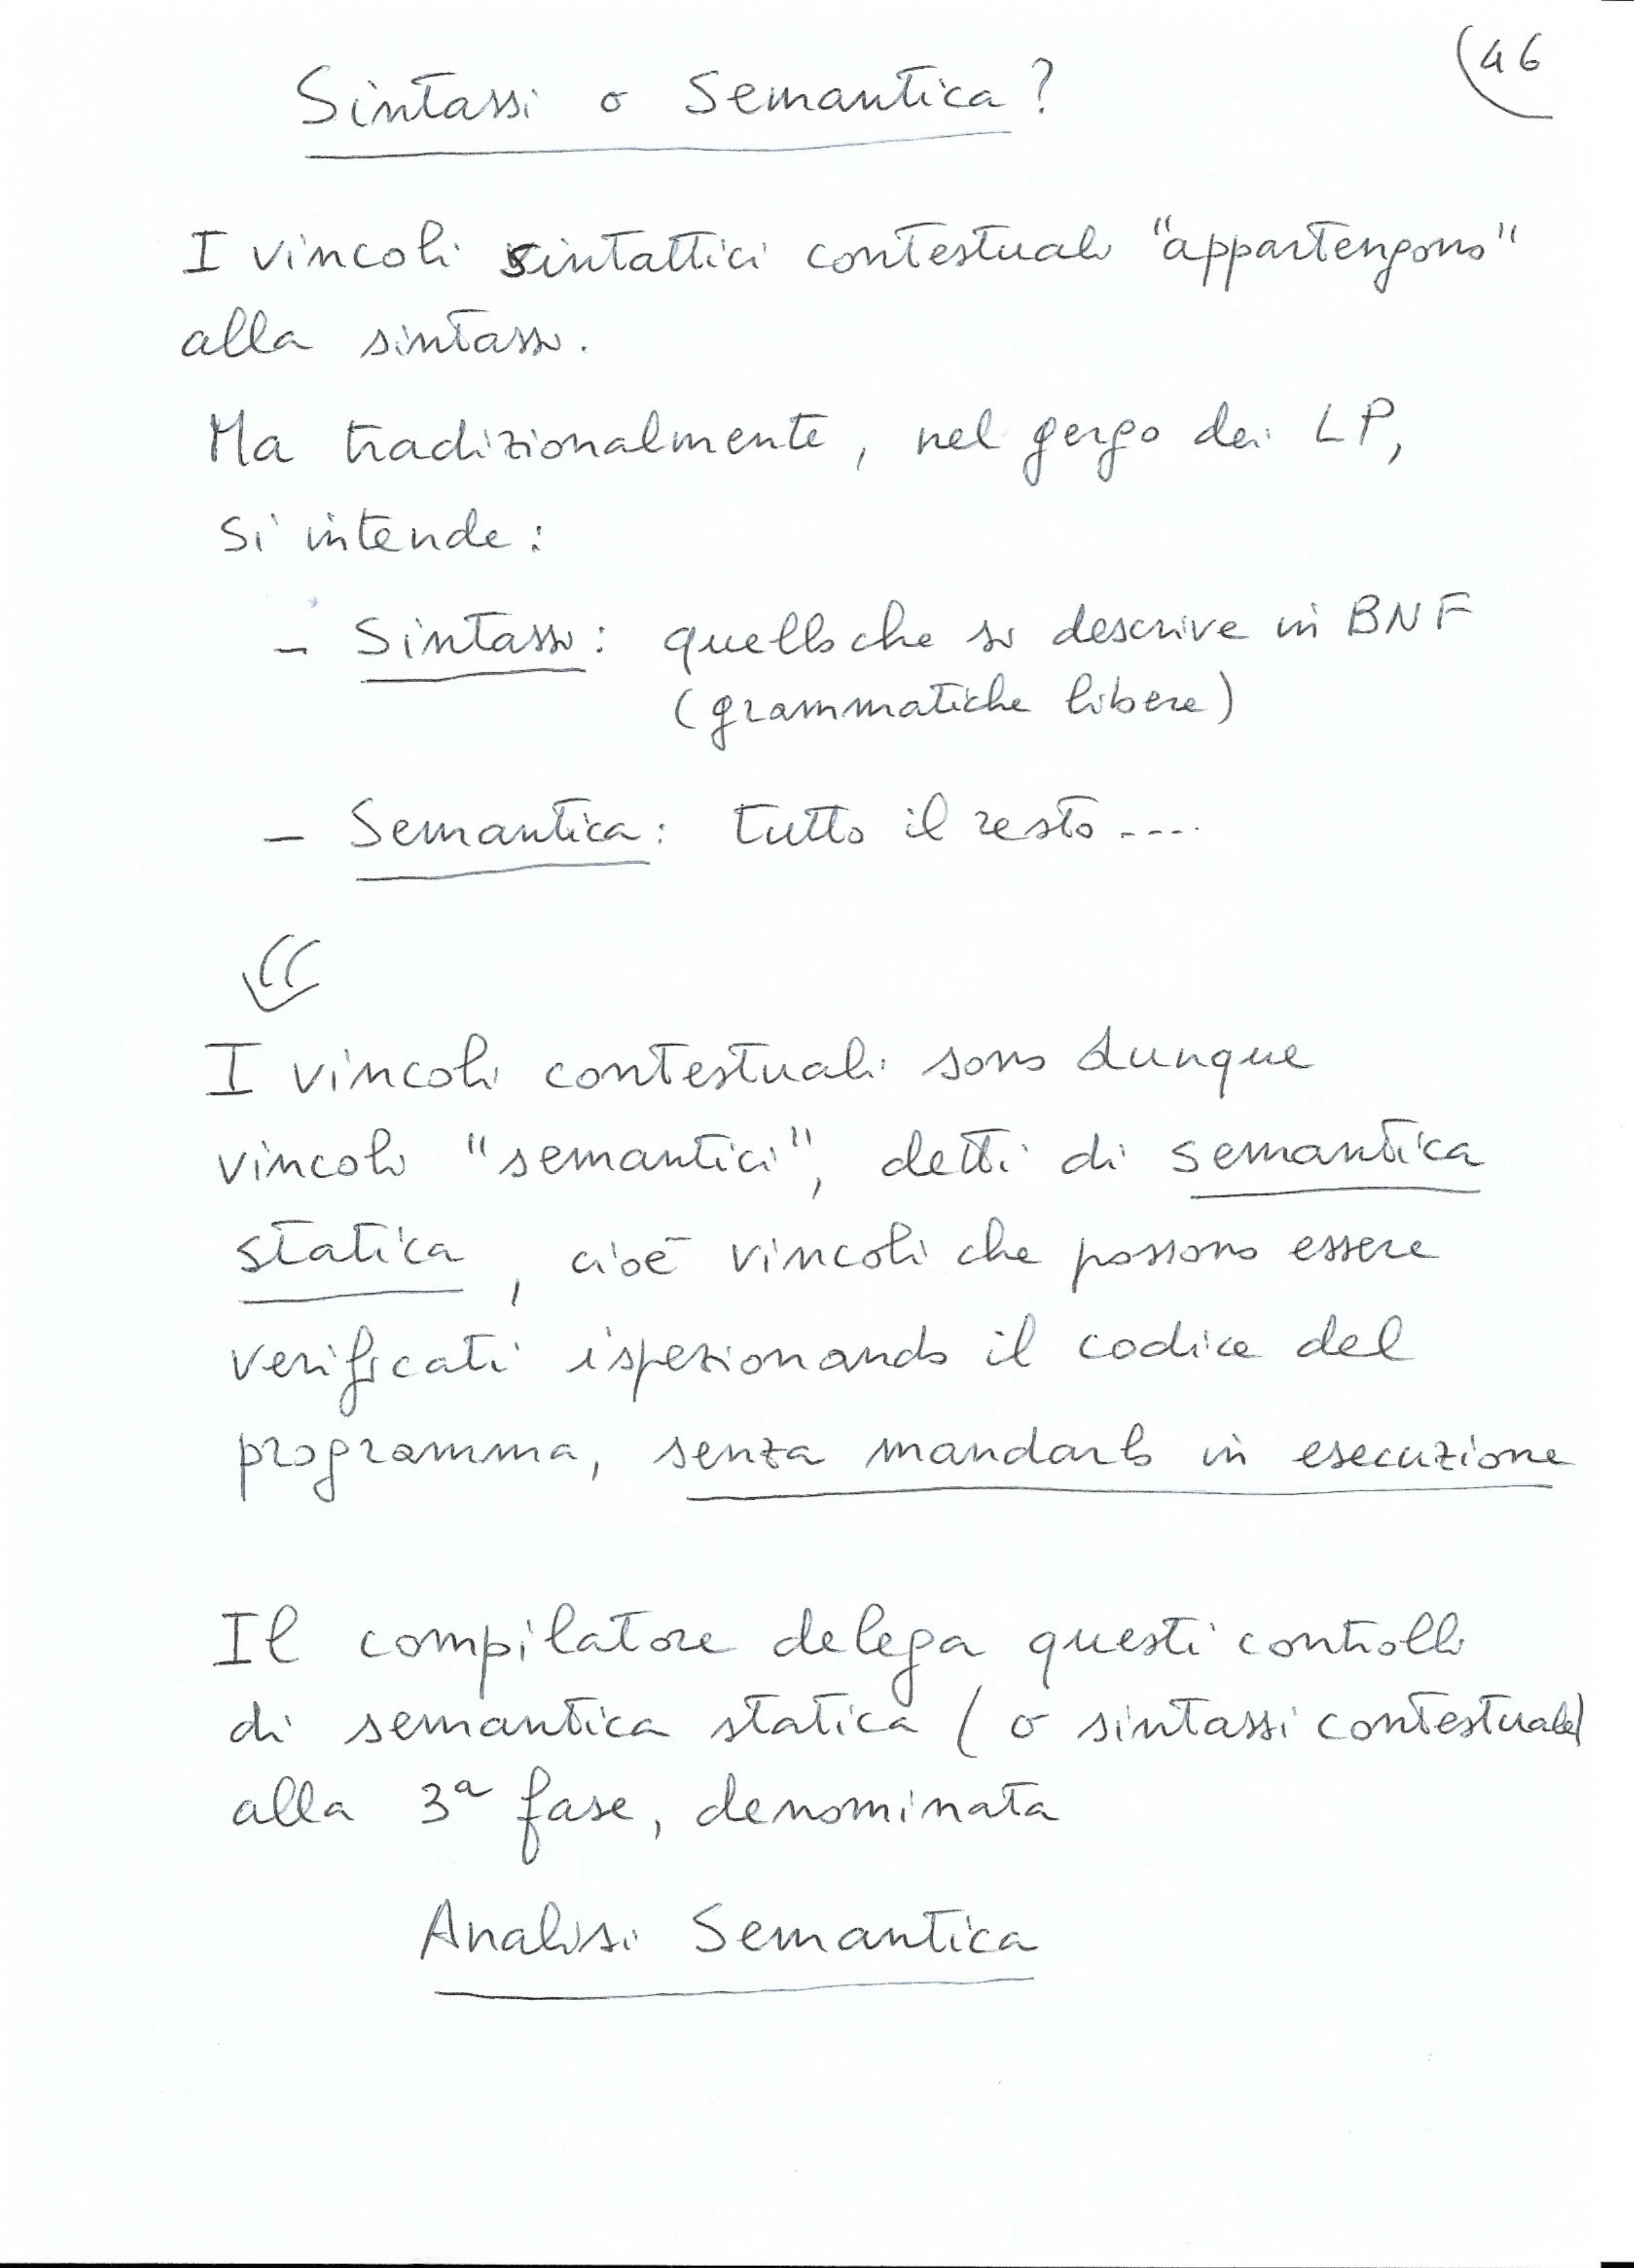 46
Sintassi o Semantica?
I vincoli sintattici contestuali "appartengono"
alla sintassi.
Ma tradizionalmente, nel gergo dei LP,
si intende:
- Sintassi: quello che si descrive in BNF
(grammatiche libere)
- Semantica: tutto il resto ....
⇓
I vincoli contestuali sono dunque
vincoli "semantici", detti di semantica
statica, cioè vincoli che possono essere
verificati ispezionando il codice del
programma, senza mandarlo in esecuzione
Il compilatore delega questi controlli
di semantica statica (o sintassi contestuale)
alla 3ª fase, denominata
Analisi Semantica